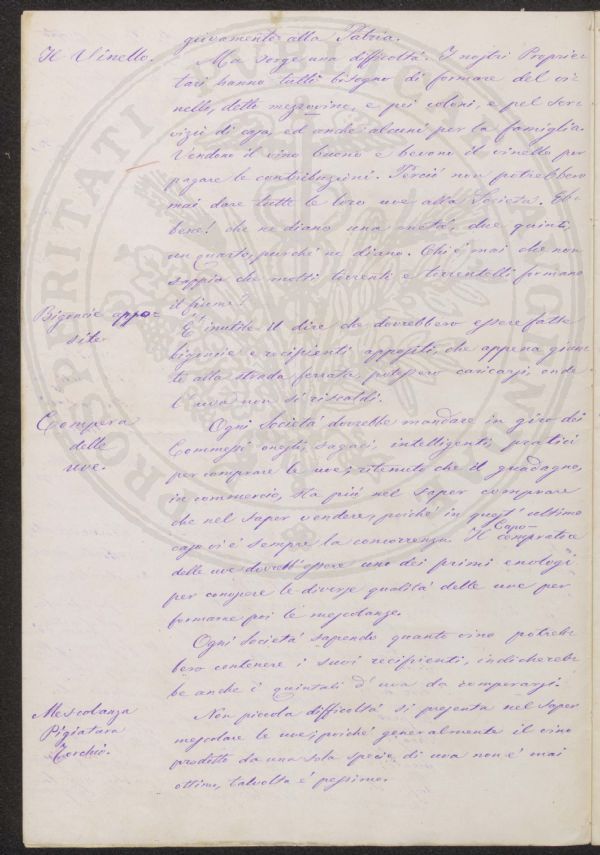 giovamento alla Patria.
Il Vinello.
Ma sorge una difficoltà. I nostri Proprie-
tari hanno tutti bisogno di formare del vi-
nello, detto mezzovino, e pei coloni, e pel ser-
vizii di casa, ed anche alcuni per la famiglia.
Vendono il vino buono e bevono il vinello per
pagare le contribuzioni. Perciò non potrebbero
mai dare tutte le loro uve alla Società. Eb-
bene! che ne diano una metà, due quinti,
un quarto, purché ne diano. Chi è mai che non
sappia che molti torrenti e torrentelli formano
il fiume?
Bigoncie appo-
site.
È inutile il dire che dovrebbero essere fatte
bigoncie e recipienti appositi, che appena giun-
te alla strada ferrata, potessero caricarsi, onde
l'uva non si riscaldi.
Compera
delle
uve.
Ogni Società dovrebbe mandare in giro dei
Commessi onesti, sagaci, intelligenti, pratici
per comprare le uve; ritenuto che il guadagno,
in commercio, sta più nel saper comprare
che nel saper vendere, poiché in quest'ultimo
caso vi è sempre la concorrenza. Il Capo-compratore
delle uve dovrebb'essere uno dei primi enologi
per conoscere le diverse qualità delle uve per
formarne poi le mescolanze.
Ogni Società sapendo quanto vino potreb-
bero contenere i suoi recipienti, indichereb-
be anche i quintali d'uva da comperarsi.
Mescolanza
Pigiatura
Torchio.
Non piccola difficoltà si presenta nel saper
mescolare le uve; poiché generalmente il vino
prodotto da una sola specie di uva non è mai
ottimo, talvolta è pessimo.